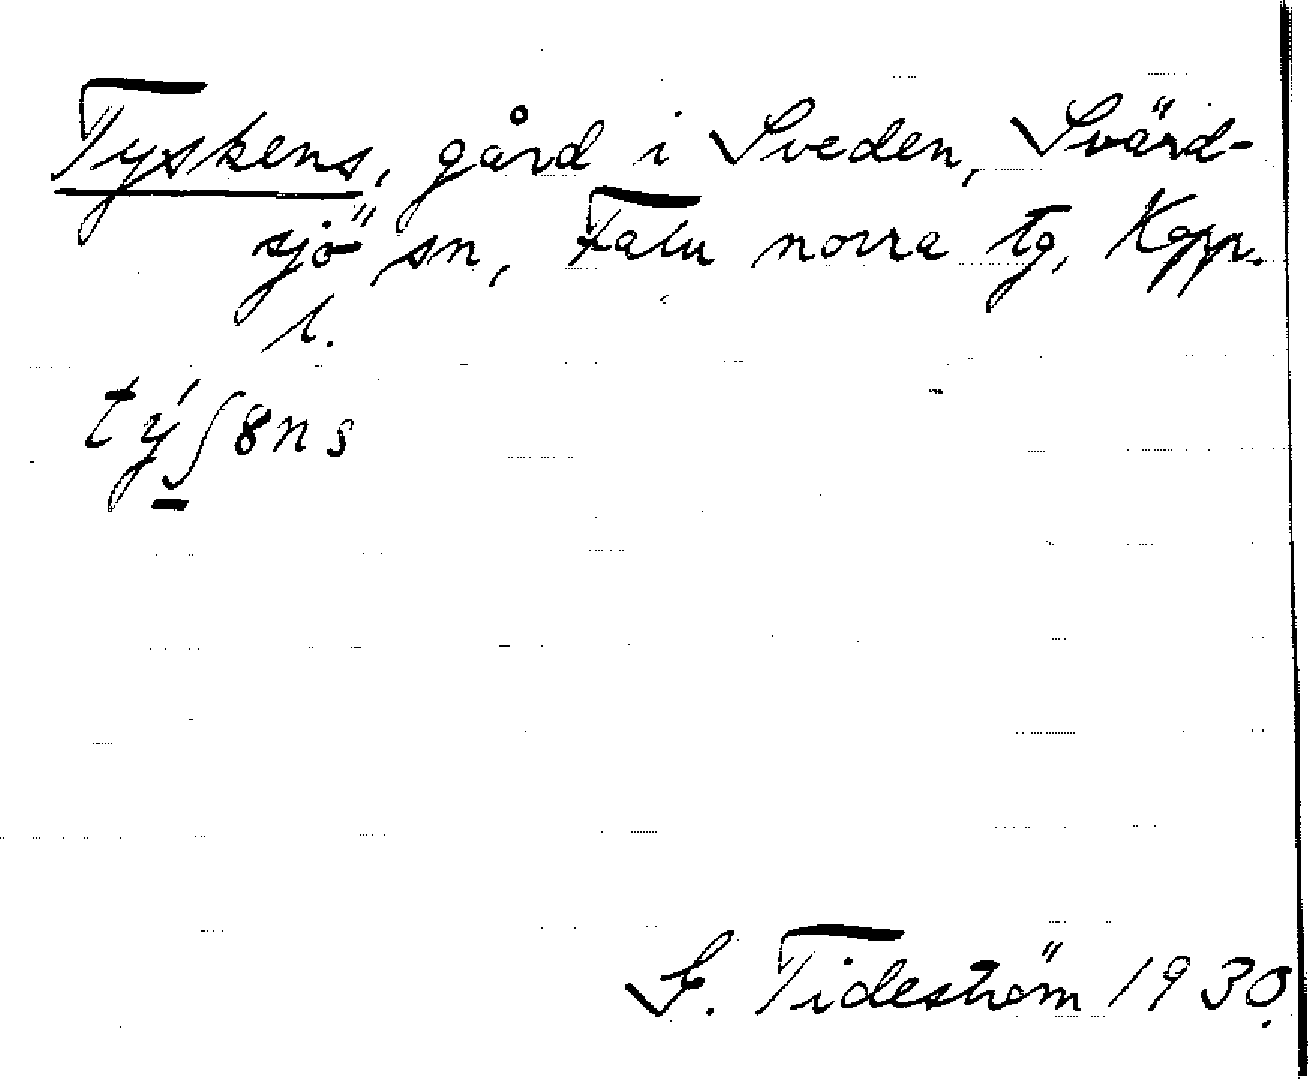 Tyskens, gård i Sveden, Svärd-
sjö sn, Falu norra tg, Kopp.
l.
tý̱ʃ8ns
S. Tideström 1930.